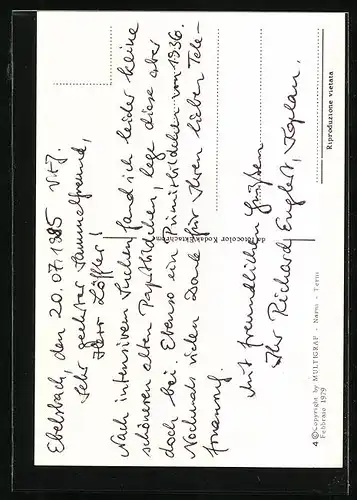 Ebelsbach, den 20.07.1985
Sehr geehrter Sammelfreund,
Herr Löffler!
Nach intensivem Suchen fand ich leider keine
schöneren alten Papstbildchen, lege diese aber
doch bei. Ebenso ein Primizbildchen von 1936.
Nochmals vielen Dank für Ihren lieben Tele-
fonanruf.
Mit freundlichen Grüßen
Ihr Richard Englert, Kaplan.
da fotocolor Kodak Ektachrome
Riproduzione vietata
4 © Copyright by MULTIGRAF - Narni - Terni
Febbraio 1979